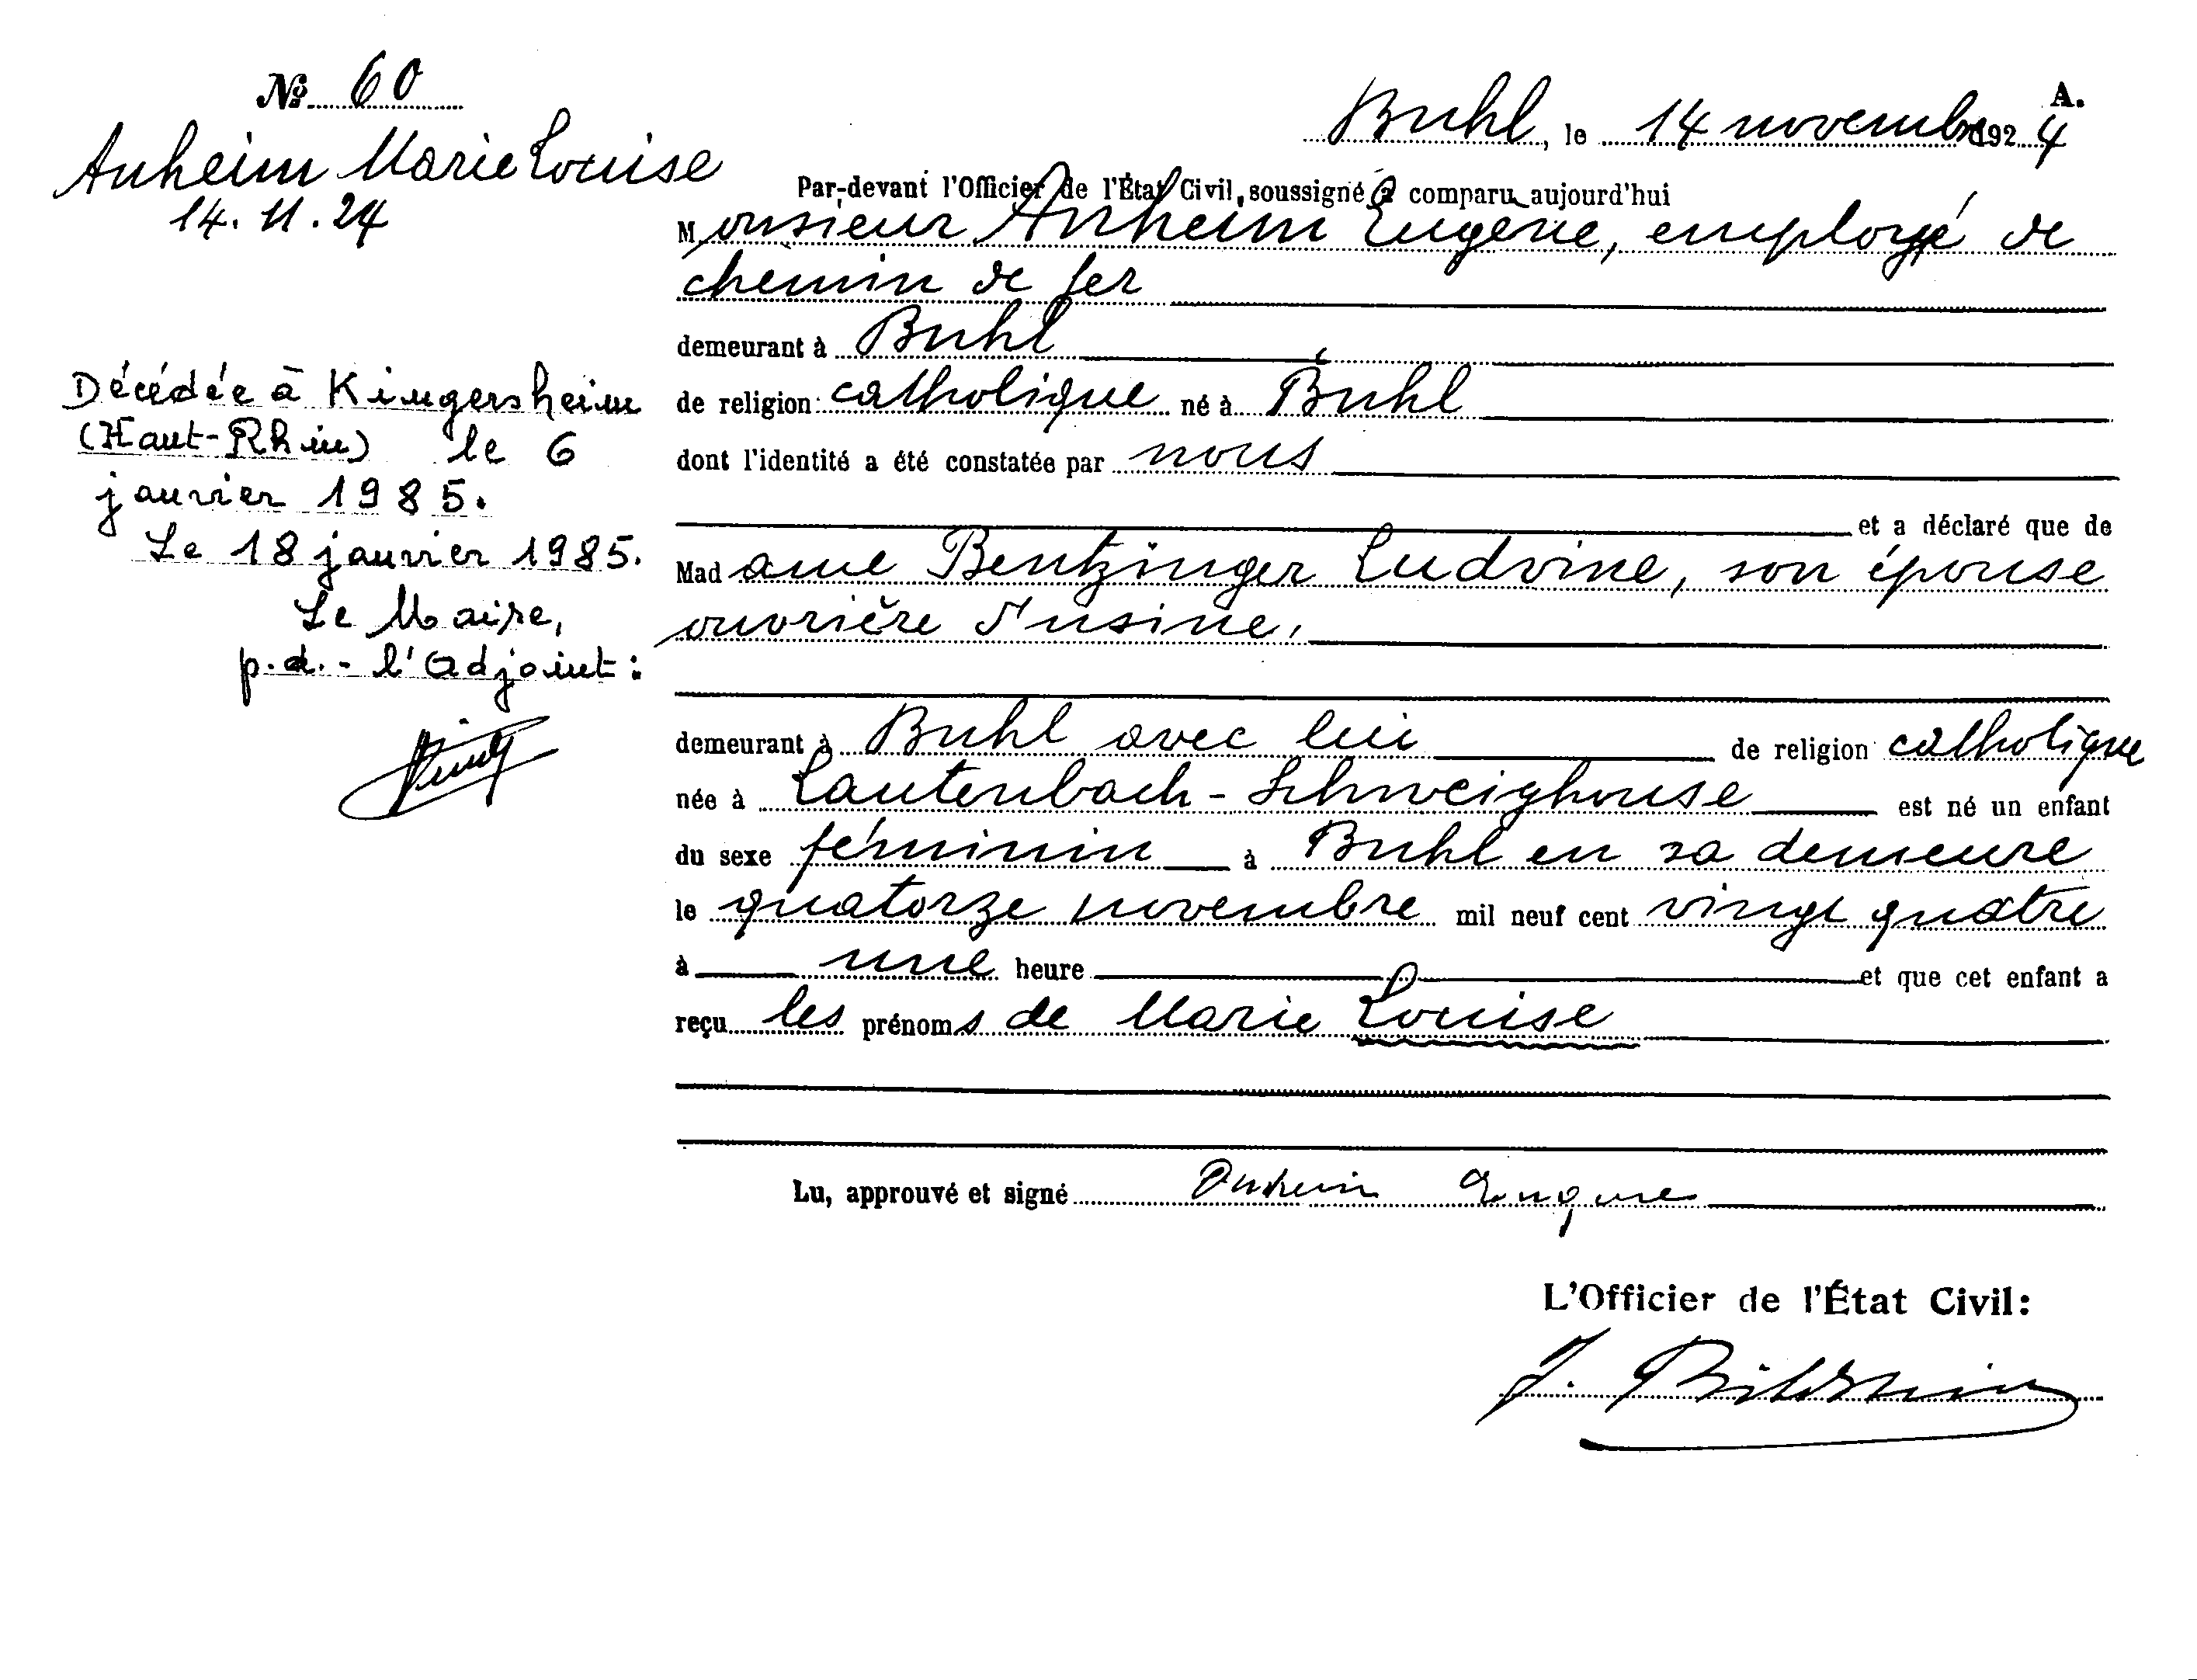 Nº 60
Anheim Marie Louise
14. 11. 24
Décédée à Kingersheim
(Haut-Rhin) le 6
janvier 1985.
Le 18 janvier 1985.
Le Maire,
p.d. - l'Adjoint :
A.
Buhl, le 14 novembre 1924
Par-devant l'Officier de l'État Civil, soussigné a comparu aujourd'hui
Monsieur Anheim Eugène, employé de
chemin de fer
demeurant à Buhl
de religion catholique né à Buhl
dont l'identité a été constatée par nous
et a déclaré que de
Madame Bentzinger Ludvine, son épouse
ouvrière d'usine,
demeurant à Buhl avec lui de religion catholique
née à Lautenbach - Schweighouse est né un enfant
du sexe féminin à Buhl en sa demeure
le quatorze novembre mil neuf cent vingt quatre
à une heure et que cet enfant a
reçu les prénoms de Marie Louise
Lu, approuvé et signé Anheim Eugène
L'Officier de l'État Civil:
J.